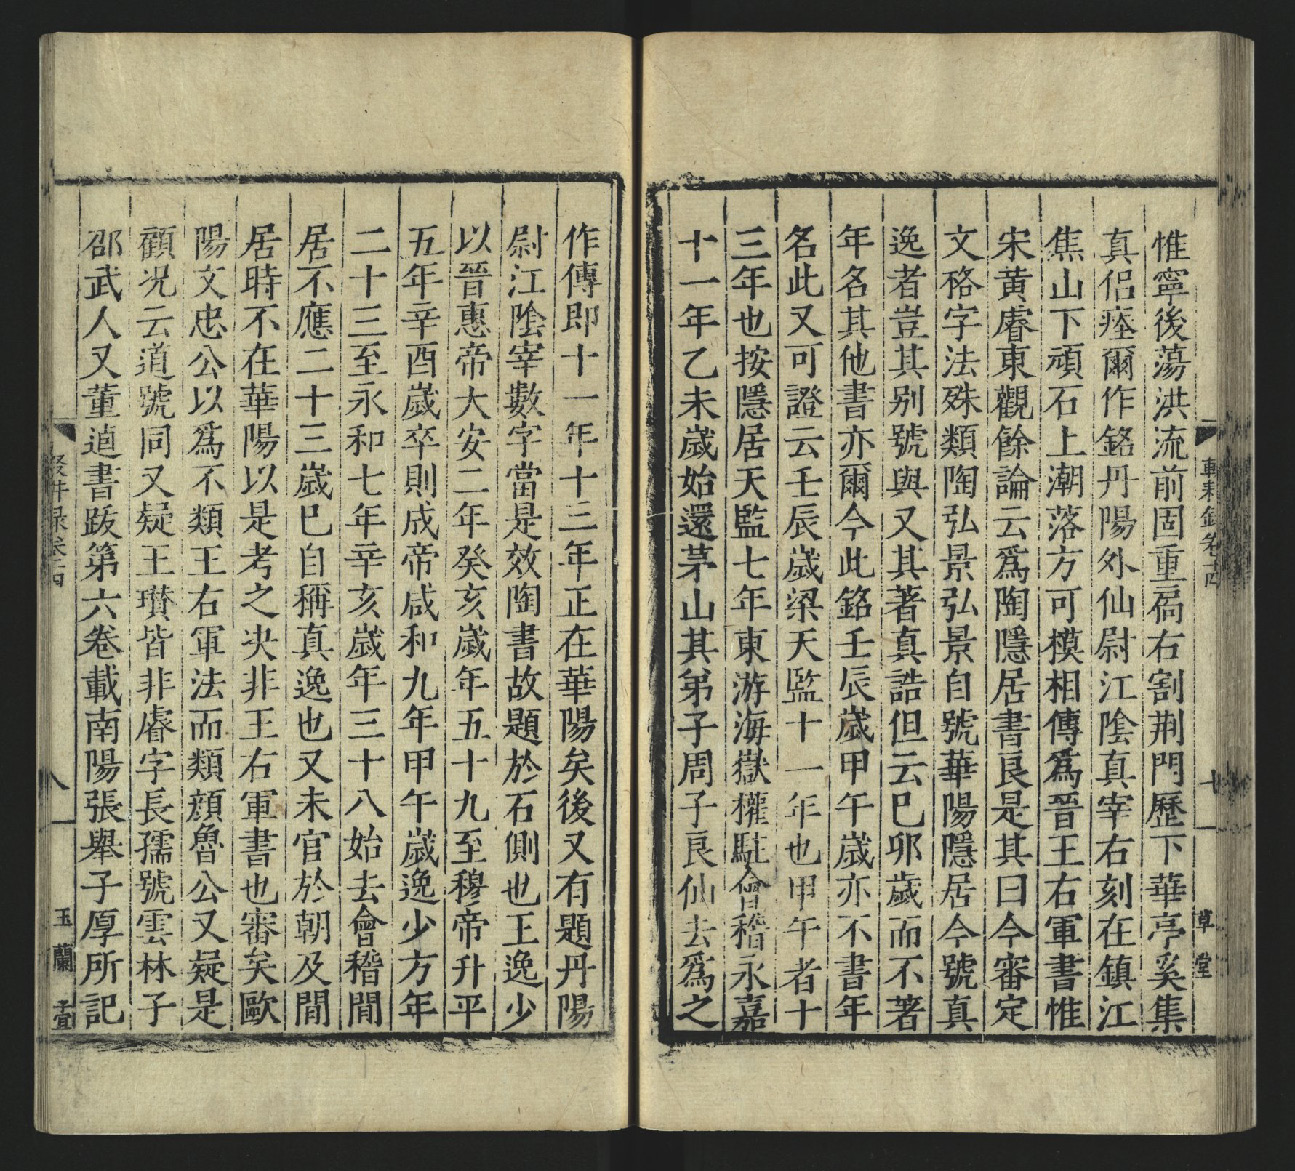 惟寧後蕩洪流前固重扃右割荆門歷下華亭奚集
真侶瘞爾作銘丹陽外仙尉江陰真宰右刻在鎮江
焦山下頑石上潮落方可模相傳爲晉王右軍書惟
宋黄睿東觀餘論云爲陶隱居書良是其曰今審定
文格字法殊類陶弘景弘景自號華陽隱居今號真
逸者豈其别號與又其著真誥但云巳卯歲而不著
年名其他書亦爾今此銘壬辰歲甲午歲亦不書年
名此又可證云壬辰歲梁天監十一年也甲午者十
三年也按隱居天監七年東游海嶽權駐會稽永嘉
十一年乙未歲始還茅山其弟子周子良仙去爲之
作傳即十一年十三年正在華陽矣後又有題丹陽
尉江隂宰數字當是效陶書故題於石側也王逸少
以晉惠帝大安二年癸亥歲年五十九至穆帝升平
五年辛酉歲卒則成帝咸和九年甲午歲逸少方年
二十三至永和七年辛亥歲年三十八始去會稽閒
居不應二十三歲巳自稱真逸也又未官於朝及閒
居時不在華陽以是考之决非王右軍書也審矣歐
陽文忠公以爲不類王右軍法而類顔魯公又疑是
顧况云道號同又疑王瓚皆非睿字長孺號雲林子
邵武人又董逌書跋第六卷載南陽張舉子厚所記
輟耕録卷十四
八
玉蘭
草堂